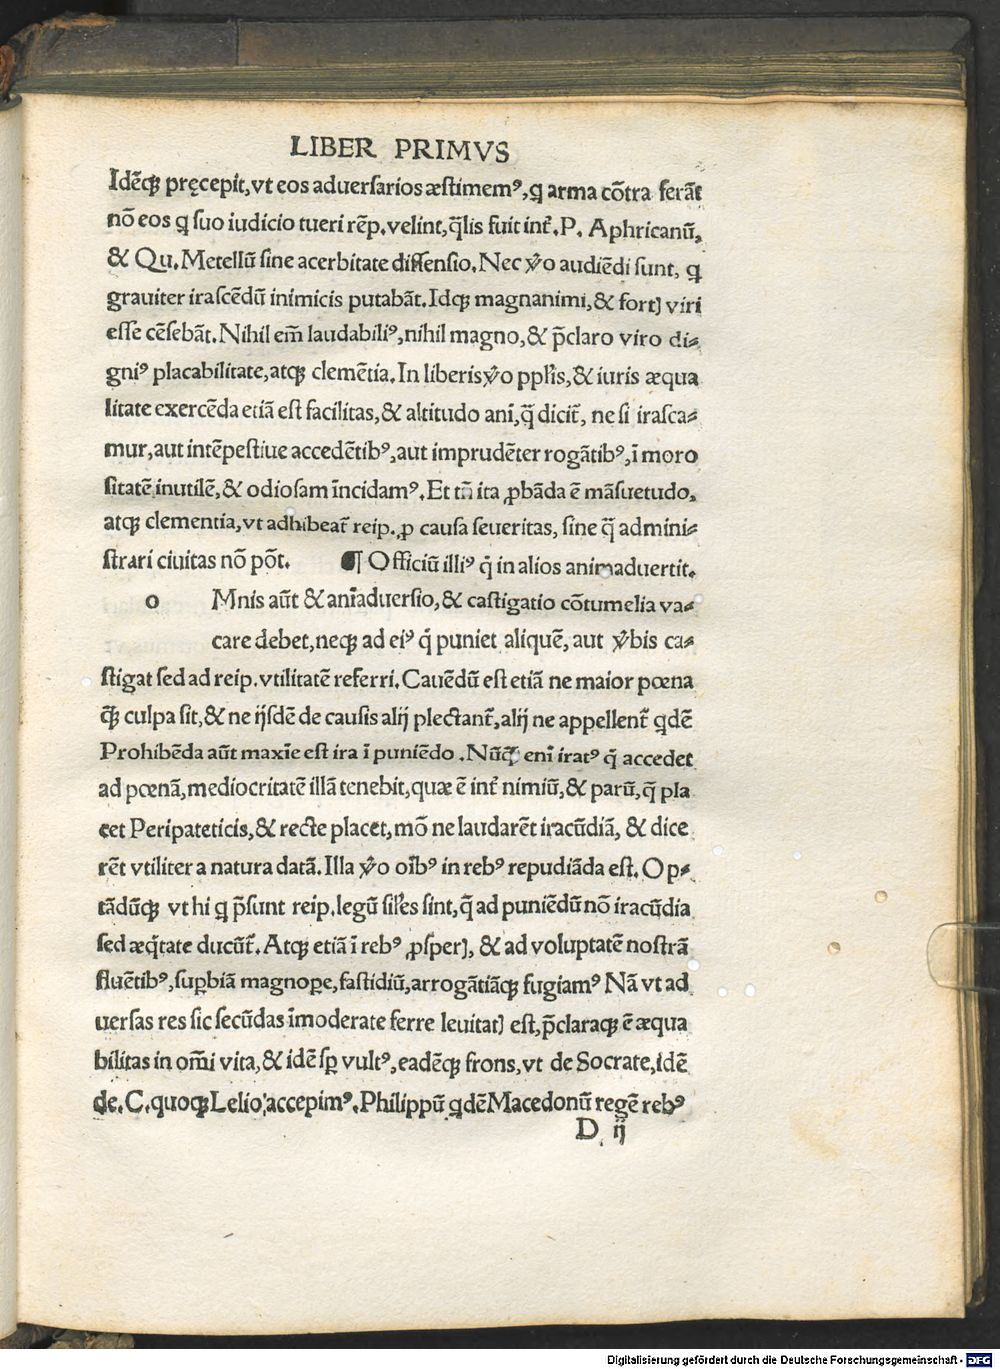 LIBER PRIMVS
Idẽqꝫ pręcepit, vt eos aduersarios æstimemꝰ, ꝗ arma cõtra ferãt
nõ eos ꝗ suo iudicio tueri rẽp. velint, q̃lis fuit int̃. P. Aphricanũ,
& Qu. Metellũ sine acerbitate dissensio. Nec ꝟo audiẽdi sunt, ꝗ
grauiter irascẽdũ inimicis putabãt. Idqꝫ magnanimi, & fortꝭ viri
esse cẽsebãt. Nihil em̃ laudabiliꝰ, nihil magno, & p̃claro viro di⸗
gniꝰ placabilitate, atqꝫ clemẽtia. In liberis ꝟo pplis̃, & iuris æqua
litate exercẽda etiã est facilitas, & altitudo ani, q̃ dicit̃, ne si irasca⸗
mur, aut intẽpestiue accedẽtibꝰ, aut imprudẽter rogãtibꝰ, ĩ moro
sitatẽ inutilẽ, & odiosam ĩncidamꝰ. Et tñ ita ꝓbãda ẽ mãsuetudo,
atqꝫ clementia, vt adhibeat̃ reip. ꝓ causa seueritas, sine q̃ admini⸗
strari ciuitas nõ põt. ¶ Officiũ illiꝰ q̃ in alios animaduertit.
o Mnis aũt & anĩaduersio, & castigatio cõtumelia va⸗
care debet, neqꝫ ad eiꝰ q̃ puniet aliquẽ, aut ꝟbis ca⸗
stigat sed ad reip. vtilitatẽ referri. Cauẽdũ est etiã ne maior pœna
q̃ꝫ culpa sit, & ne ijsdẽ de causis alij plectant̃, alij ne appellent̃ ꝗdẽ
Prohibẽda aũt maxĩe est ira ĩ puniẽdo. Nũq̃ꝫ enĩ iratꝰ q̃ accedet
ad pœnã, mediocritatẽ illã tenebit, quæ ẽ int̃ nimiũ, & parũ, q̃ pla
cet Peripateticis, & recte placet, mõ ne laudarẽt iracũdiã, & dice
rẽt vtiliter a natura datã. Illa ꝟo oĩbꝰ in rebꝰ repudiãda est. Op⸗
tãdũqꝫ vt hi ꝗ p̃sunt reip. legũ siles̃ sint, q̃ ad puniẽdũ nõ iracũdia
sed æq̃tate ducũt̃. Atqꝫ etiã ĩ rebꝰ ꝓsperꝭ, & ad voluptatẽ nostrã
fluẽtibꝰ, suꝑbiã magnoꝑe, fastidiũ, arrogãtiãqꝫ fugiamꝰ Nã vt ad
uersas res sic secũdas ĩmoderate ferre leuitatꝭ est, p̃claraqꝫ ẽ æqua
bilitas in om̃i vita, & idẽ sꝑ vultꝰ, eadẽqꝫ frons, vt de Socrate, idẽ
de. C. quoqꝫ Lelio accepimꝰ. Philippũ ꝗdẽ Macedonũ regẽ rebꝰ
D ij
Digitalisierung gefördert durch die Deutsche Forschungsgemeinschaft - DFG